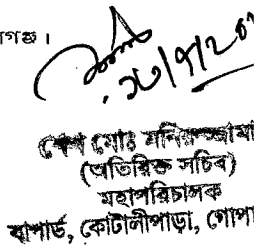 াগঞ্জ।
শেখ মোঃ মনিরুজ্জামা
(অতিরিক্ত সচিব)
মহাপরিচালক
বাপার্ড, কোটালীপাড়া, গোপা